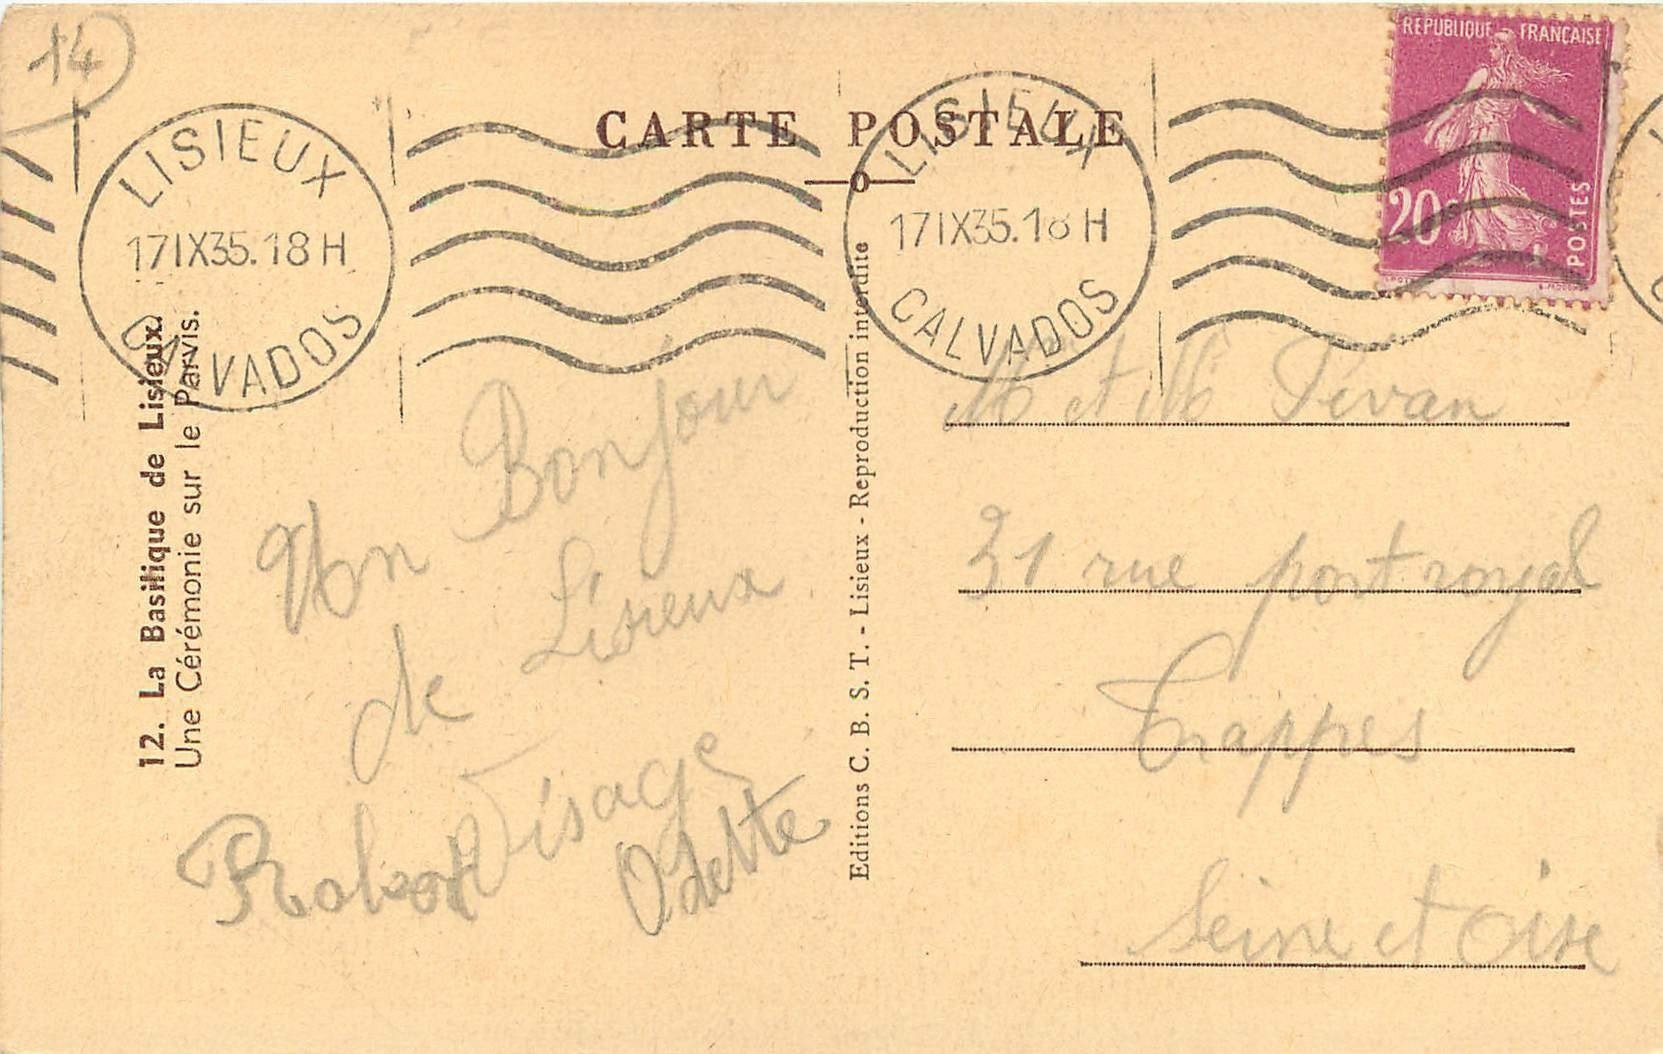 14
CARTE POSTALE
LISIEUX
17 IX 35. 18 H
CALVADOS
LISIEUX
17 IX 35. 18 H
CALVADOS
REPUBLIQUE FRANÇAISE
20c
POSTES
12. La Basilique de Lisieux.
Une Cérémonie sur le Parvis.
Un Bonjour
de Lisieux
Robert Visage
Odette
Editions C. B. S. T. - Lisieux - Reproduction interdite
M et M Pévan
31 rue port royal
Trappes
Seine et Oise